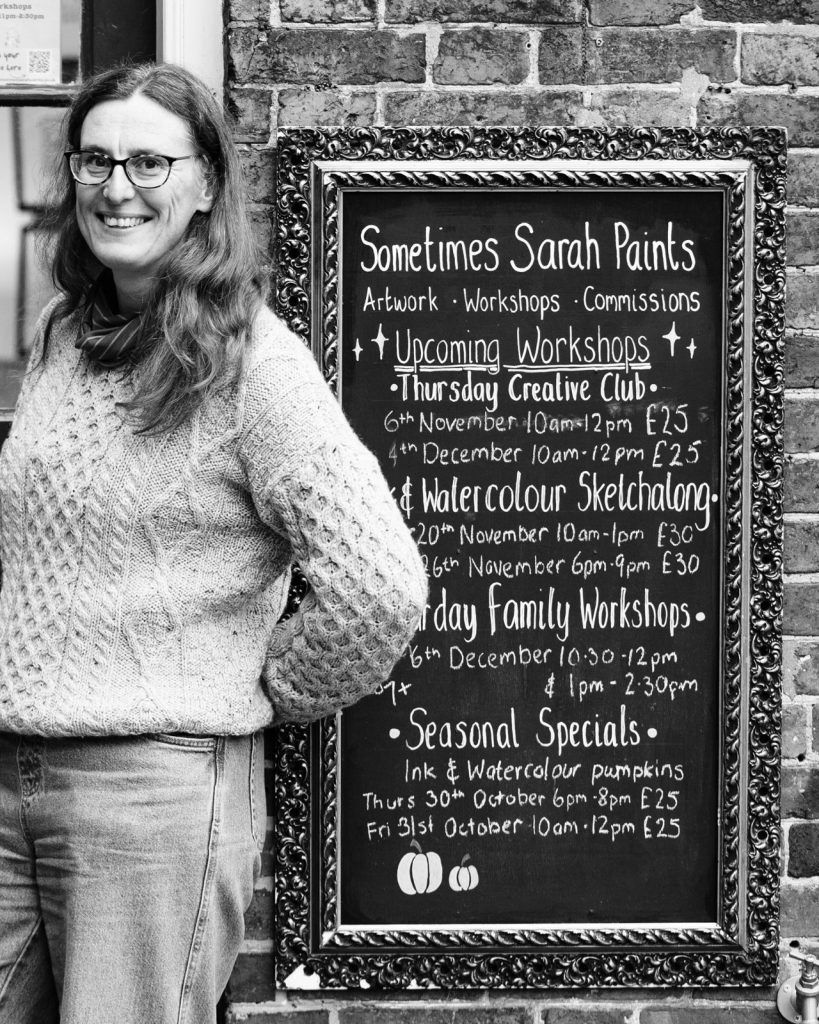 rkshops
1pm-2:30pm
Sometimes Sarah Paints
Artwork · Workshops · Commissions
Upcoming Workshops
• Thursday Creative Club •
6th November 10am-12pm £25
4th December 10am-12pm £25
& Watercolour Sketchalong •
20th November 10am-1pm £30
26th November 6pm-9pm £30
rday Family Workshops •
6th December 10.30-12pm
& 1pm - 2.30pm
• Seasonal Specials •
Ink & Watercolour pumpkins
Thurs 30th October 6pm-8pm £25
Fri 31st October 10am-12pm £25